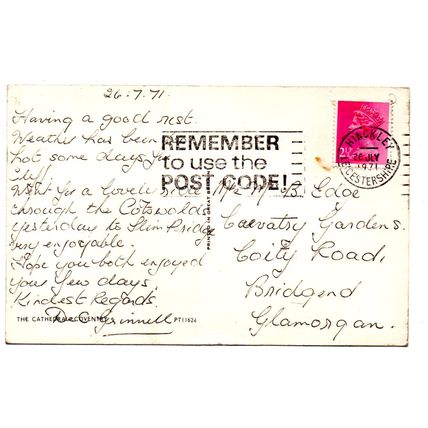 26.7.71.
Having a good rest.
Weather has been
hot some days
Went for a lovely ride
through the Cotswolds
yesterday to Slimbridge
very enjoyable.
Hope you both enjoyed
your few days.
Kindest Regards.
Grinnell
REMEMBER
to use the
POST CODE!
HINCKLEY
26 JLY
1971
LEICESTERSHIRE
2½
M. B.
Gardens.
Coity Road,
Bridgend
Glamorgan.
THE CATHEDRAL COVENTRY
PT11624